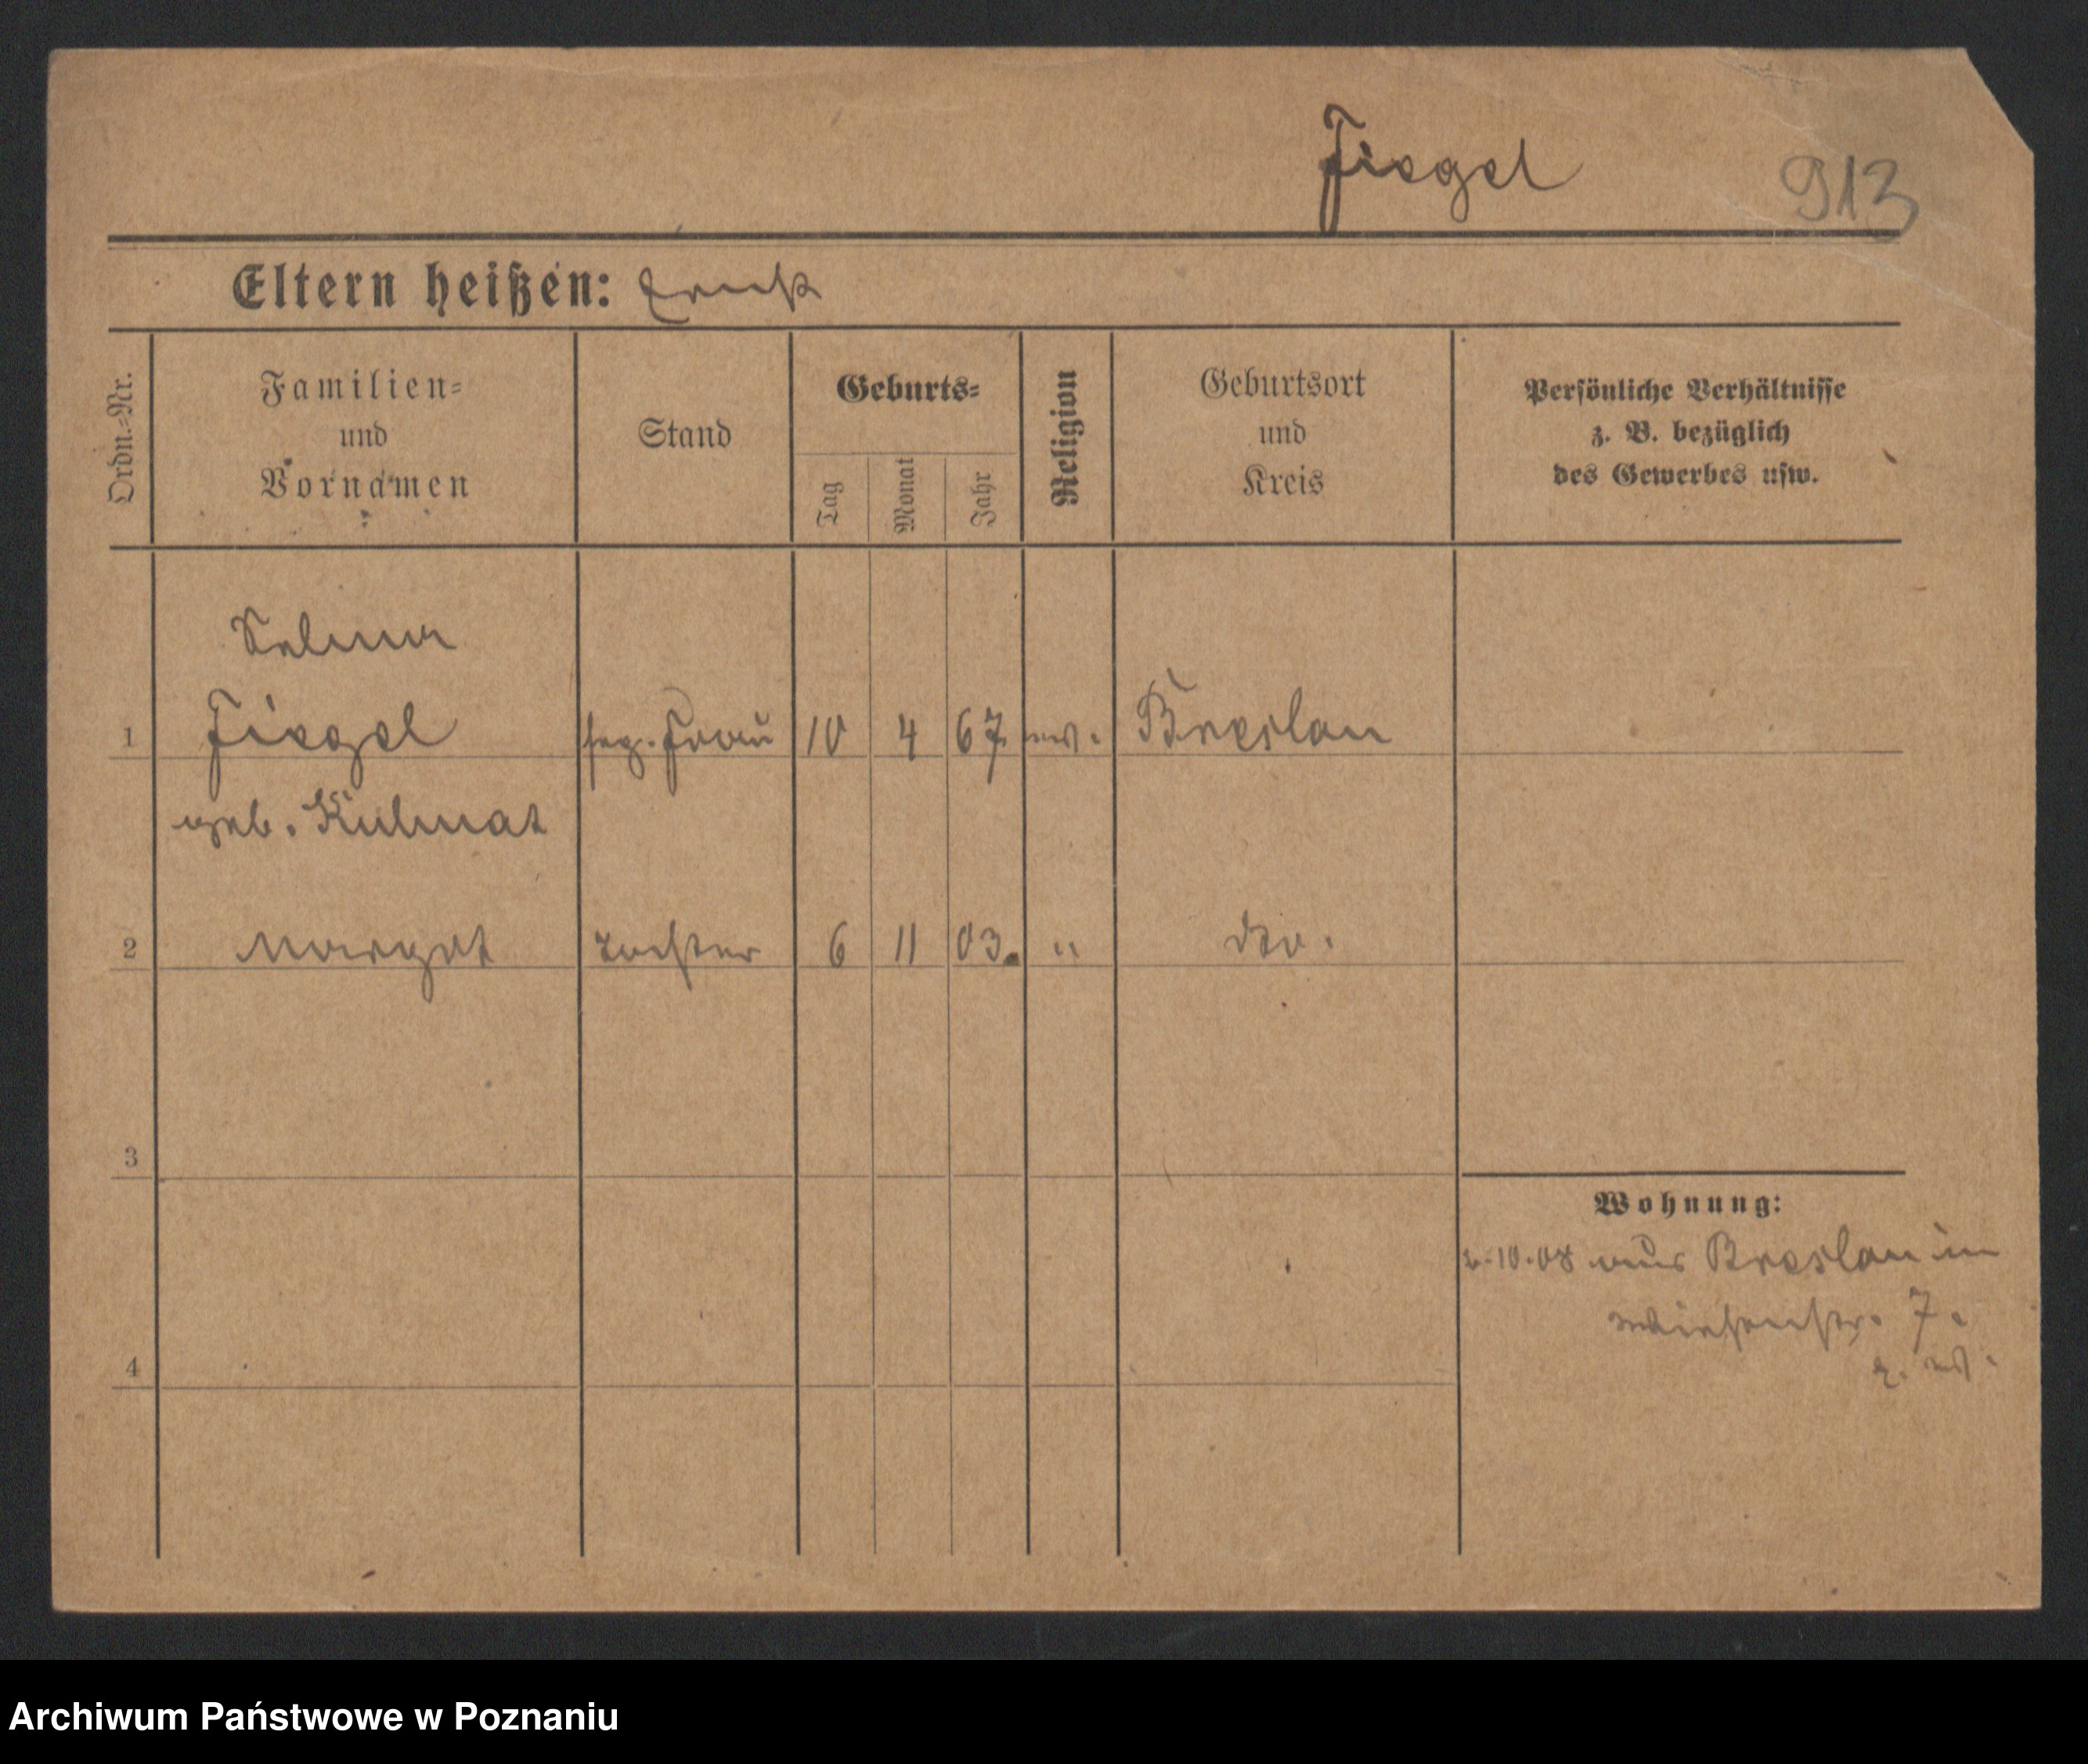 Fiegel 913
Eltern heißen: Ernst
Ordn.-Nr.
Familien-
und
Vornamen
Stand
Geburts-
Tag
Monat
Jahr
Religion
Geburtsort
und
Kreis
Persönliche Verhältnisse
z. B. bezüglich
des Gewerbes usw.
Selma
1 Fiegel Frau 10 4 67 Breslau
geb. Kulmat
2 Margot Tochter 6 11 03. " dto.
3
Wohnung:
10.08 aus Breslau in
7.
4
Archiwum Państwowe w Poznaniu